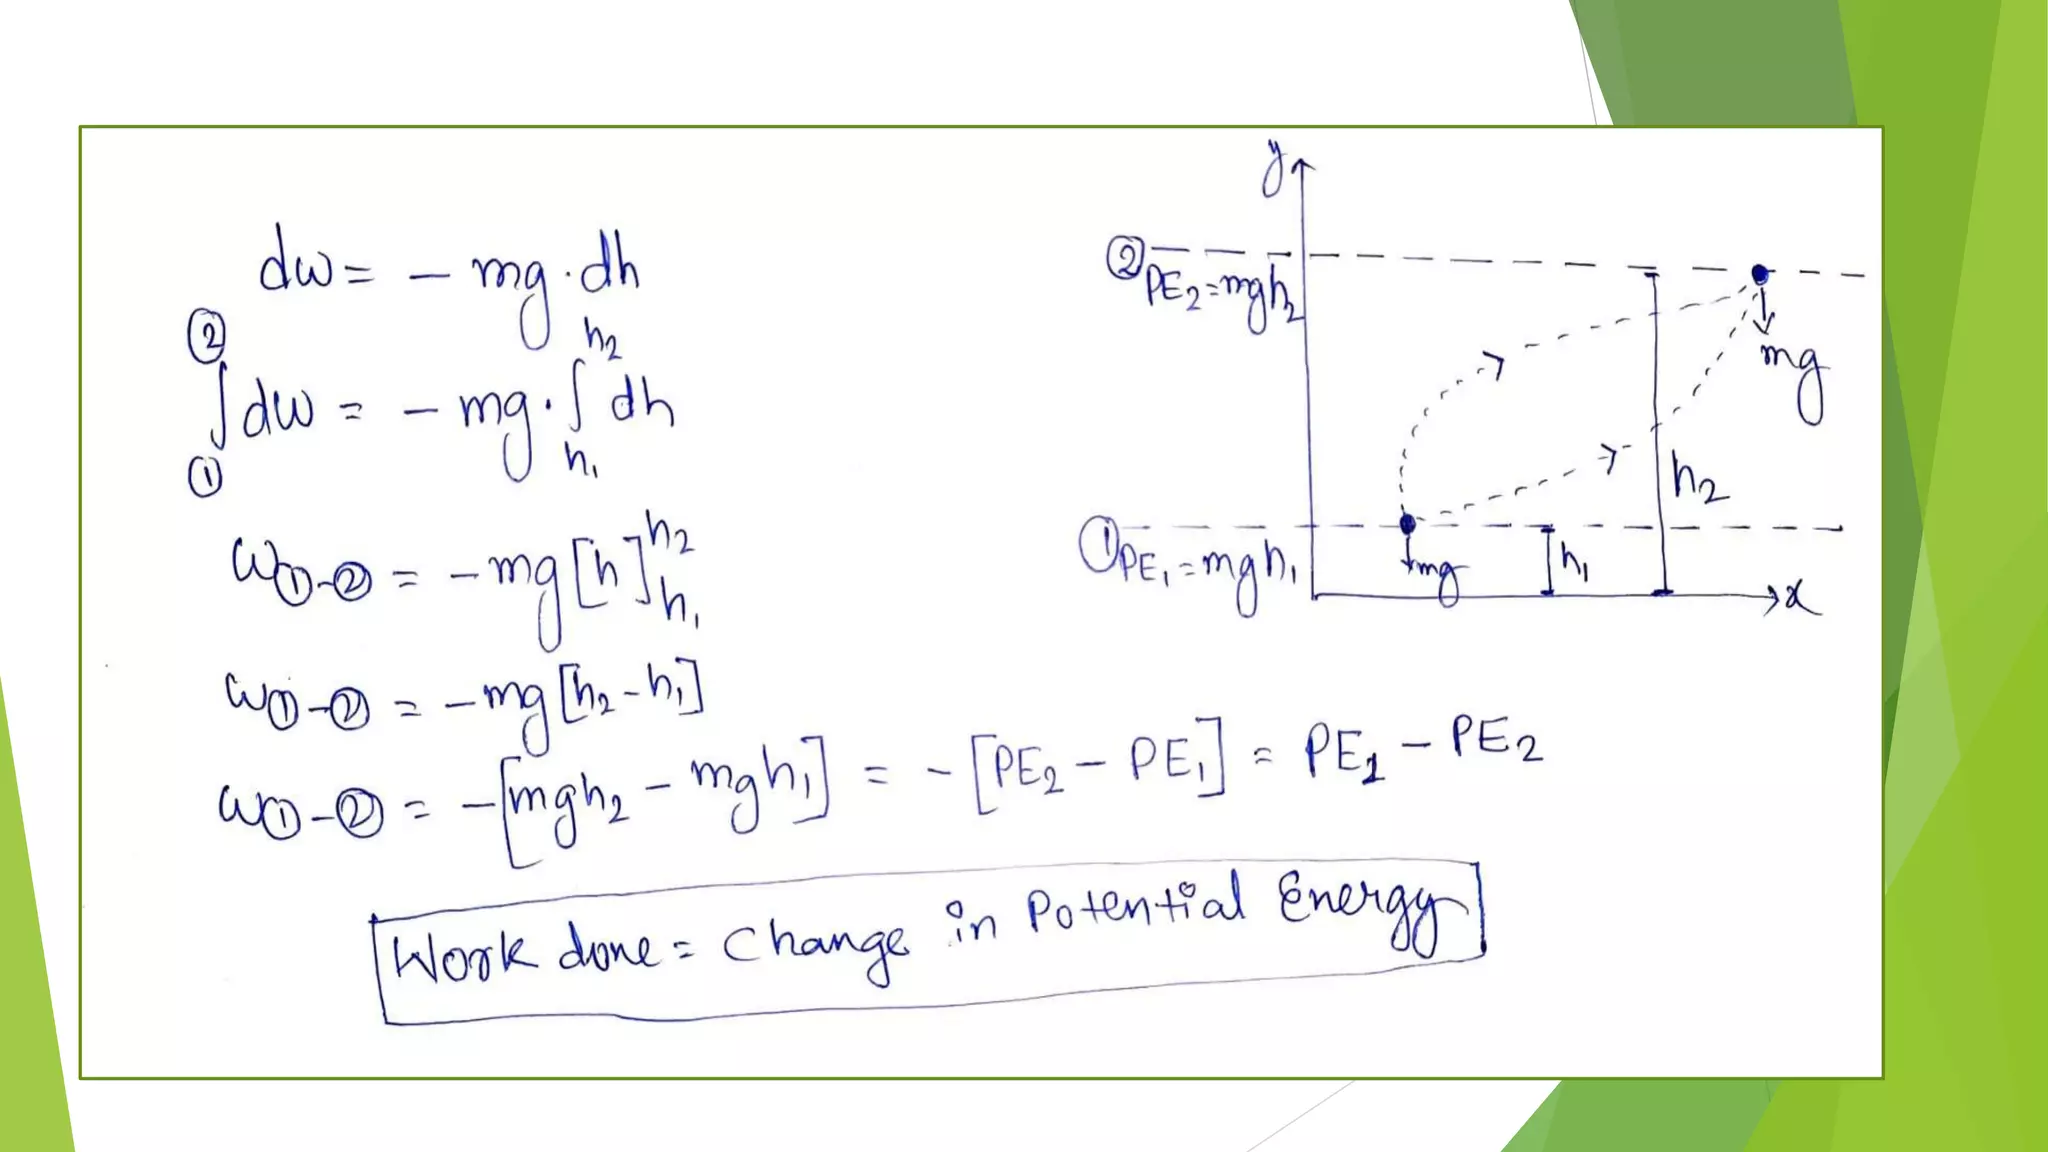 dw = - mg . dh
② h2
∫ dw = - mg . ∫ dh
① h1
w①-② = - mg [h] h2 h1
w①-② = - mg [h2 - h1]
w①-② = - [mgh2 - mgh1] = - [PE2 - PE1] = PE1 - PE2
Work done = Change in Potential Energy
y
②
PE2 = mgh2
mg
h2
①
PE1 = mgh1
mg
h1
x